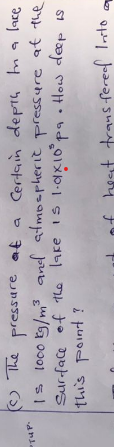 (c) The pressure at a certain depth in a lake
is 1000 kg/m³ and atmospheric pressure at the
surface of the lake is 1.01×10⁵ pa. How deep is
this point?
of heat transfered into a